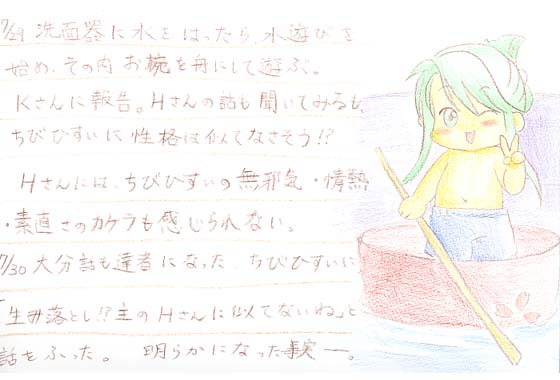 7/29 洗面器に水をはったら、水遊びを
始め、その内お椀を舟にして遊ぶ。
Kさんに報告。Hさんの話も聞いてみるも、
ちびひすいに性格は似てなさそう!?
Hさんには、ちびひすいの無邪気・情熱
・素直さのカケラも感じられない。
7/30 大分話も達者になった ちびひすいに
「生み落とし!?主のHさんに似てないね」と
話をふった。 明らかになった事実―。